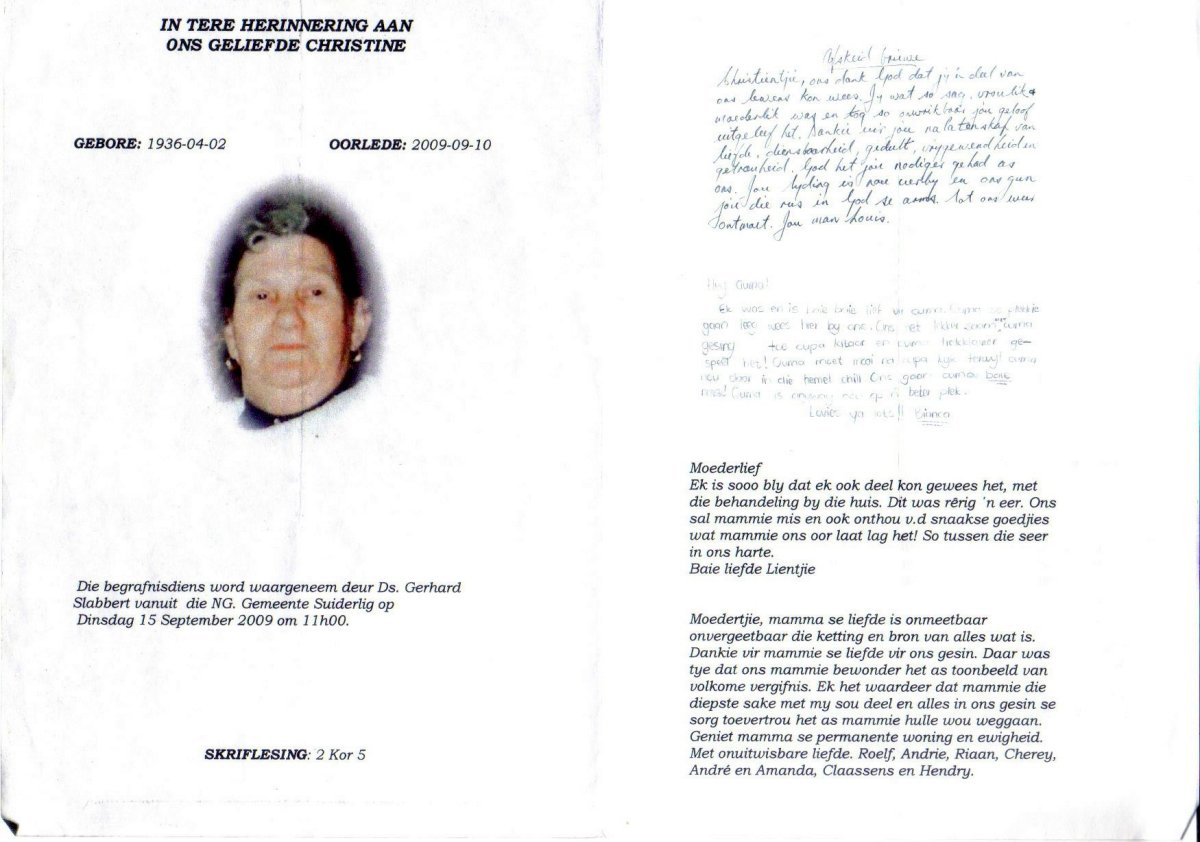 IN TERE HERINNERING AAN
ONS GELIEFDE CHRISTINE
GEBORE: 1936-04-02 OORLEDE: 2009-09-10
Die begrafnisdiens word waargeneem deur Ds. Gerhard
Slabbert vanuit die NG. Gemeente Suiderlig op
Dinsdag 15 September 2009 om 11h00.
SKRIFLESING: 2 Kor 5
Afskeid briewe
Christientjie, ons dank God dat jy 'n deel van
ons lewens kon wees. Jy wat so sag, vroulik +
moederlik was en tog so onwrikbaar jou geloof
uitgeleef het. Dankie vir jou nalatenskap van
liefde, diensbaarheid, geduld, en
getrouheid. God het jou nodiger gehad as
ons. Jou lyding is nou verby en ons gun
jou die rus in God se arms. Tot ons weer
ontmoet. Jou man Louis.
Hey Ouma!
Ek was en is baie baie lief vir ouma. Ouma se plekkie
gaan leeg wees hier by ons. Ons het lekker saam met ouma
gesing toe oupa kitaar en ouma ge-
speel het! Ouma moet mooi na oupa kyk terwyl ouma
nou daar in die hemel chill. Ons gaan ouma baie
mis! Ouma is nou op 'n beter plek.
Lovies ya lots!! Bianca
Moederlief
Ek is sooo bly dat ek ook deel kon gewees het, met
die behandeling by die huis. Dit was rêrig 'n eer. Ons
sal mammie mis en ook onthou v.d snaakse goedjies
wat mammie ons oor laat lag het! So tussen die seer
in ons harte.
Baie liefde Lientjie
Moedertjie, mamma se liefde is onmeetbaar
onvergeetbaar die ketting en bron van alles wat is.
Dankie vir mammie se liefde vir ons gesin. Daar was
tye dat ons mammie bewonder het as toonbeeld van
volkome vergifnis. Ek het waardeer dat mammie die
diepste sake met my sou deel en alles in ons gesin se
sorg toevertrou het as mammie hulle wou weggaan.
Geniet mamma se permanente woning en ewigheid.
Met onuitwisbare liefde. Roelf, Andrie, Riaan, Cherey,
André en Amanda, Claassens en Hendry.